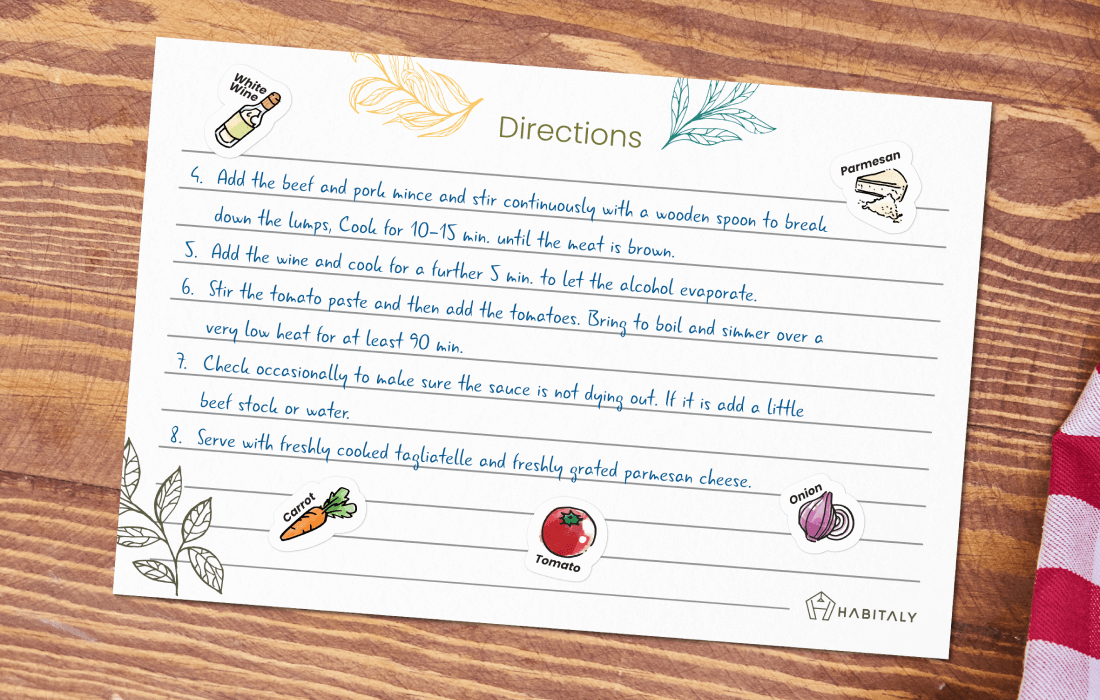 White
Wine
Directions
Parmesan
4. Add the beef and pork mince and stir continuously with a wooden spoon to break
down the lumps, Cook for 10-15 min. until the meat is brown.
5. Add the wine and cook for a further 5 min. to let the alcohol evaporate.
6. Stir the tomato paste and then add the tomatoes. Bring to boil and simmer over a
very low heat for at least 90 min.
7. Check occasionally to make sure the sauce is not dying out. If it is add a little
beef stock or water.
8. Serve with freshly cooked tagliatelle and freshly grated parmesan cheese.
Carrot
Tomato
Onion
HABITALY